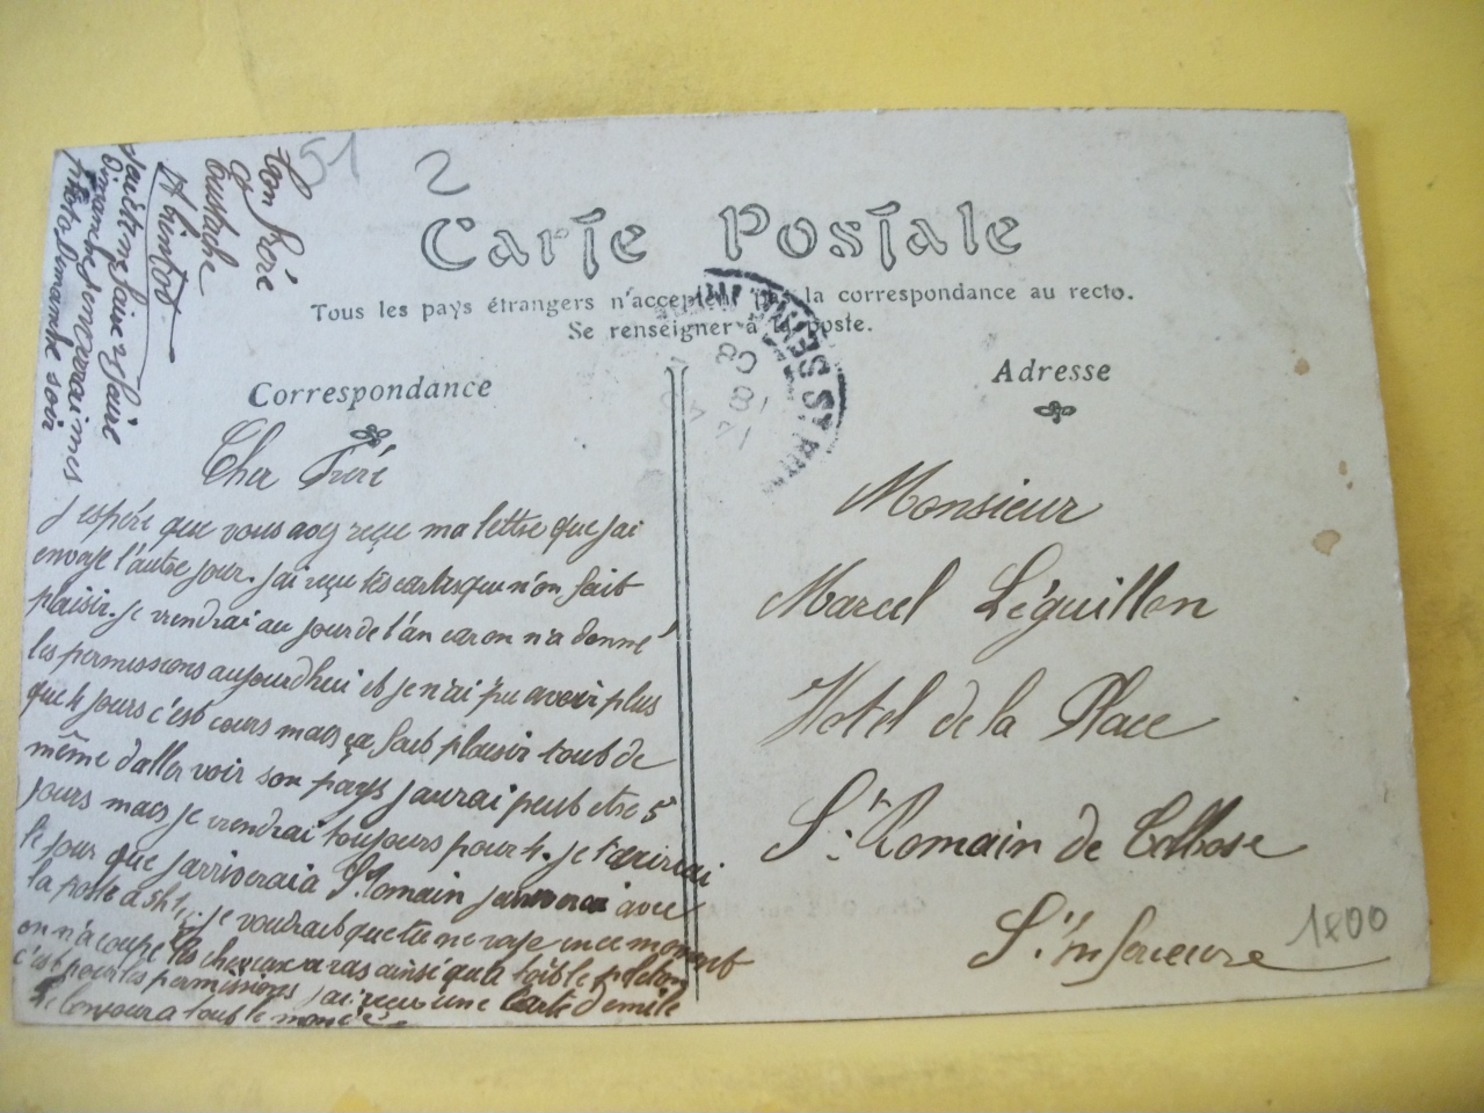 51
2
Carte Postale
Tous les pays étrangers n'acceptent pas la correspondance au recto.
Se renseigner à la poste.
Correspondance
Adresse
Cher Freré
J'espére que vous avez reçue ma lettre que jai
envoyé l'autre jour. jai reçu tes cartes que n'on fait
plaisir. je viendrai au jour de l'an car on n'a donné
les permissions aujourdhui et je n'ai pu avoir plus
que 4 jours c'est cours mais ça fait plaisir tout de
même daller voir son pays jaurai peut etre 5
jours mais je viendrai toujours pour 4. je t'écrirai
le jour que jarriverai à St Romain jarriverai avec
la poste a 5h 1/2. je voudrait que tu me voye en ce moment
on n'a coupé les cheveux a ras ainsi qua tout le peloton
c'est pour les permissions jai reçu une Carte d'emile
le bonjour a tout le monde
Ton freré
Eustache
A bientot
peut être faire
Dimanche, je mes
photo Dimanche soir
Monsieur
Marcel Léguillon
Hotel de la Place
St. Romain de Colbosc
St. Inferieure
1800